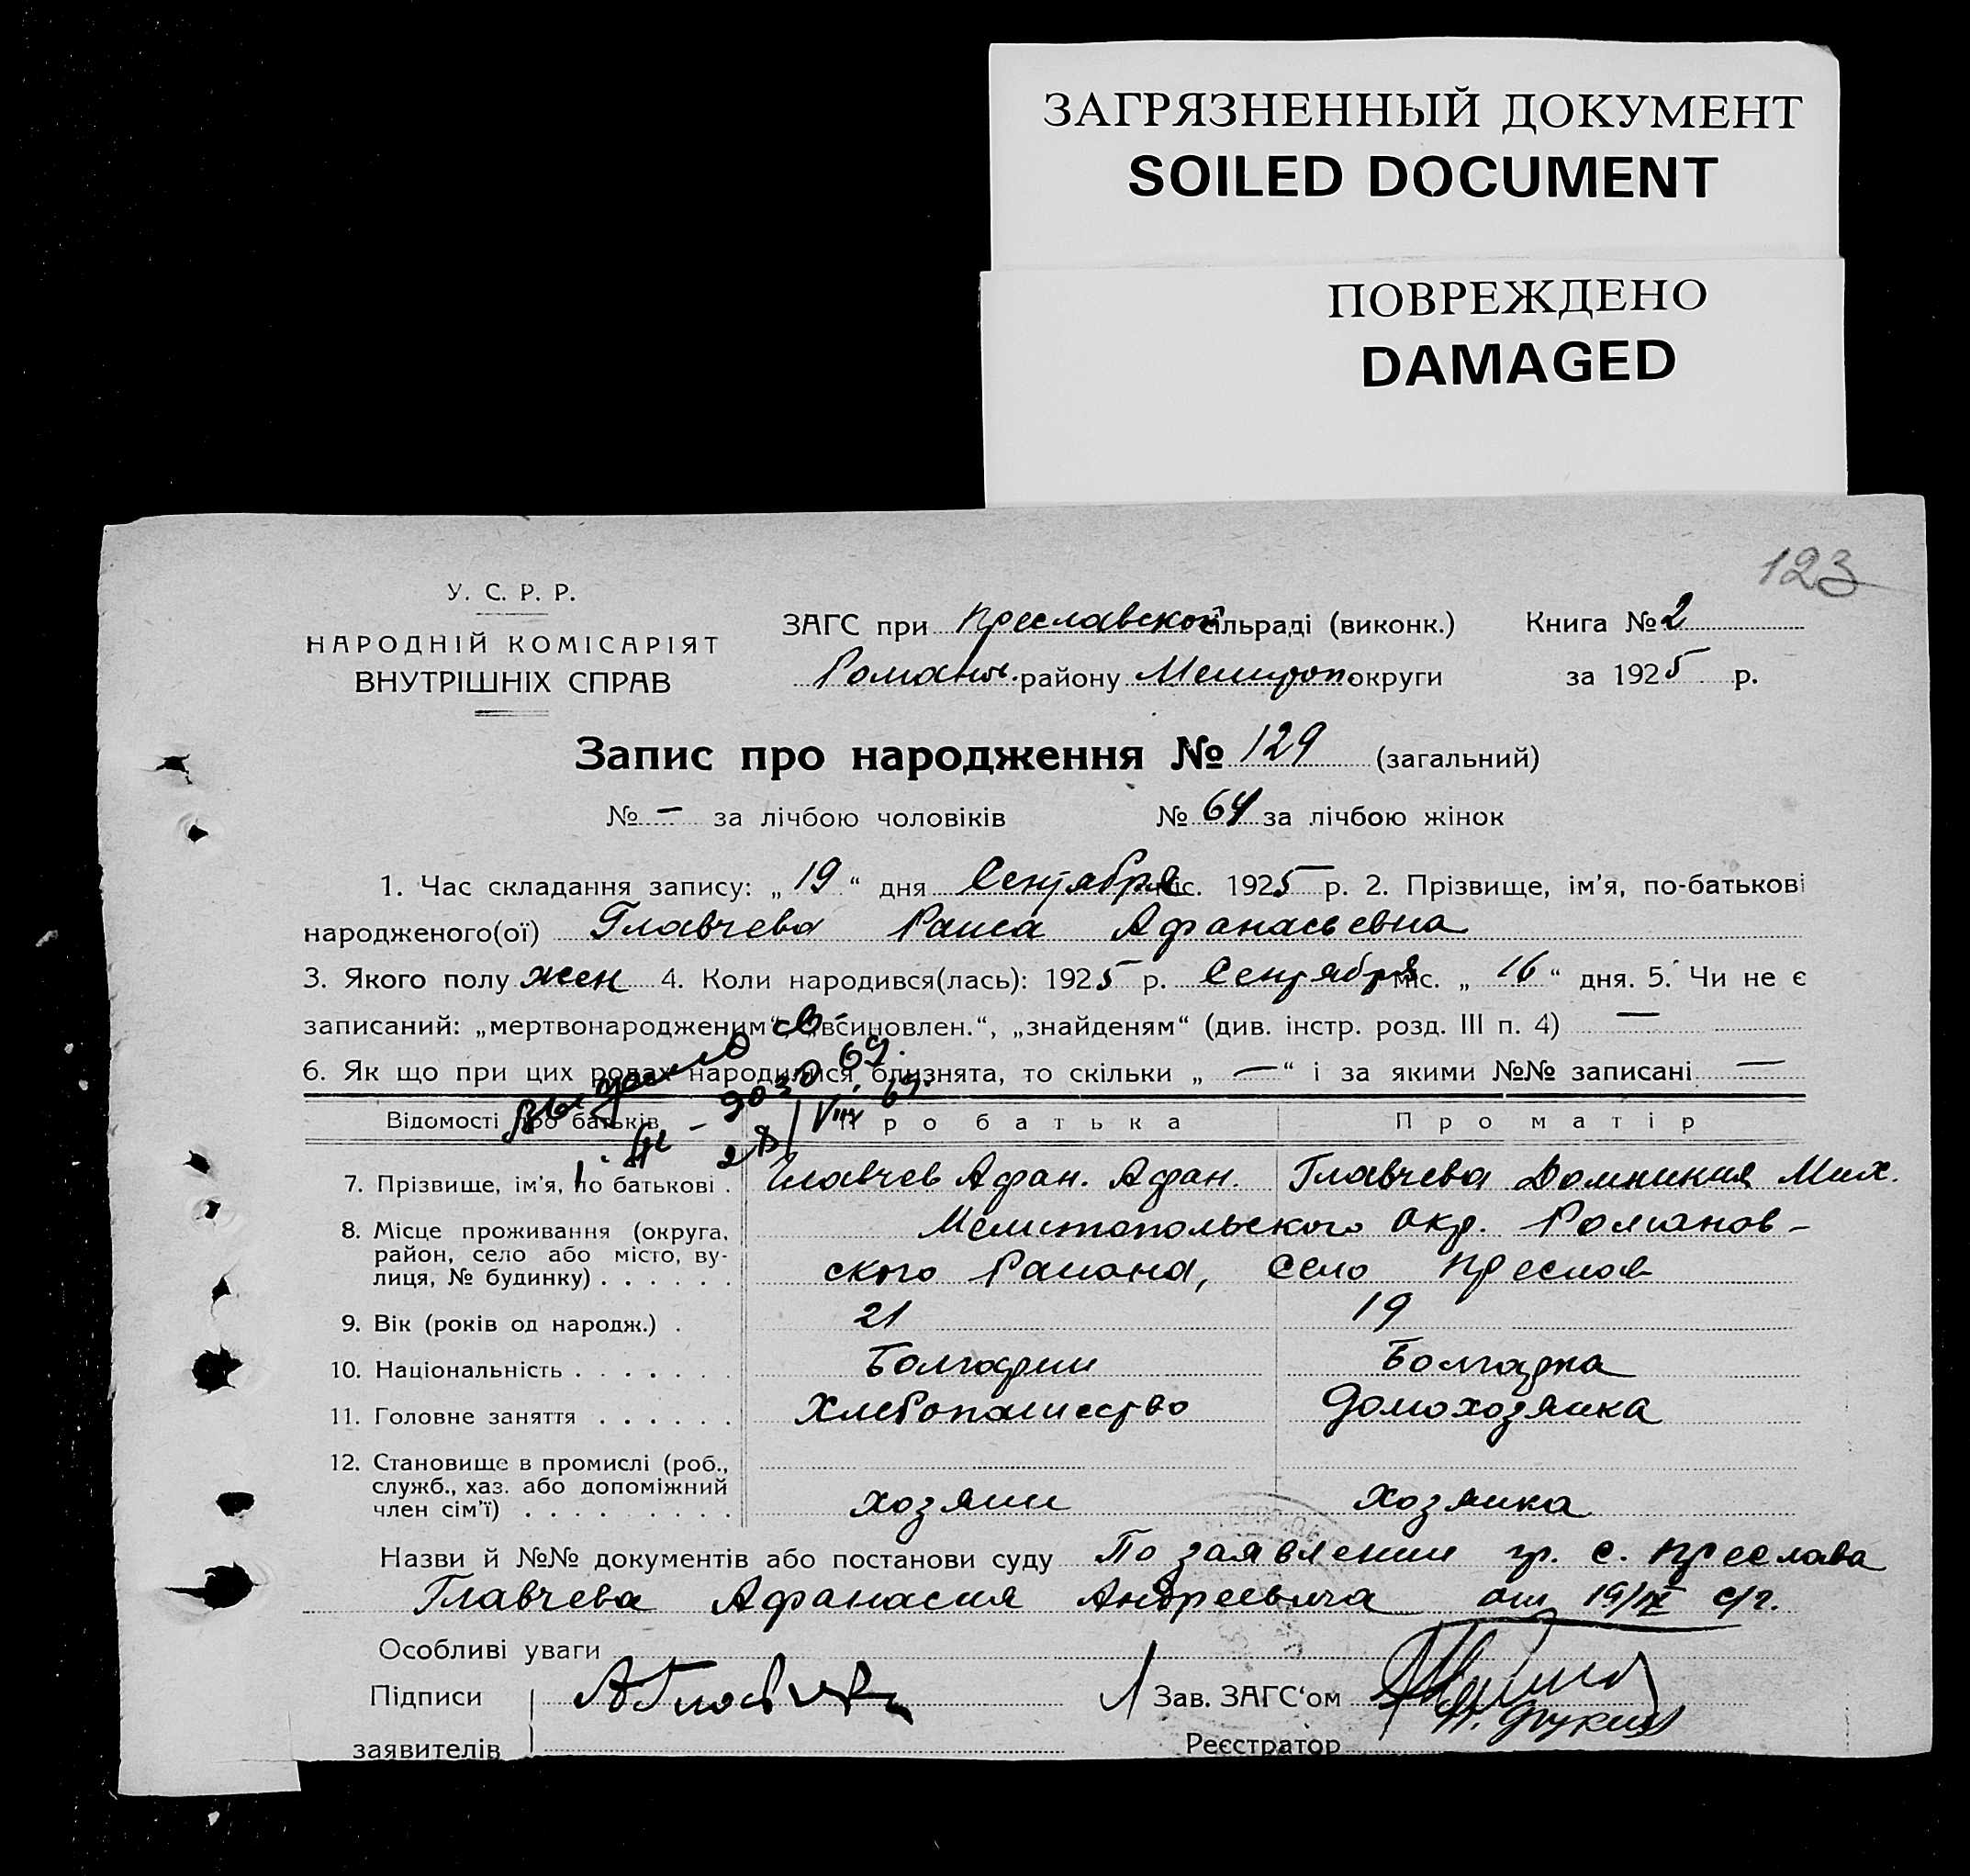 ЗАГРЯЗНЕННЫЙ ДОКУМЕНТ
SOILED DOCUMENT
ПОВРЕЖДЕНО
DAMAGED
123
У. С. Р. Р.
НАРОДНІЙ КОМІСАРІЯТ
ВНУТРІШНІХ СПРАВ
ЗАГС при Преславской сільраді (виконк.) Книга № 2
Романов. району Мелитоп. округи за 1925 р.
Запис про народження № 129 (загальний)
№ — за лічбою чоловіків № 64 за лічбою жінок
1. Час складання запису: „19“ дня Сентября міс. 1925 р. 2. Прізвище, ім'я, по-батькові
народженого(ої) Главчева Раиса Афанасьевна
3. Якого полу жен 4. Коли народився(лась): 1925 р. Сентября міс. „16“ дня. 5. Чи не є
записаний: „мертвонародженим“, „всиновлен.“, „знайденям“ (див. інстр. розд. III п. 4) —
6. Як що при цих родах народилися близнята, то скільки „—“ і за якими №№ записані —
Выдано св-во
28/VIII 69.
Відомості про батьків Про батька Про матір
7. Прізвище, ім'я, по батькові . Главчев Афан. Афан. Главчева Домникия Мих.
8. Місце проживання (округа, Мелитопольского окр. Романов-
район, село або місто, ву-
лиця, № будинку) . . . . . . ского Района, село Преслав
9. Вік (років од народж.) . 21 19
10. Національність . . . . . . . Болгарин Болгарка
11. Головне заняття . . . . . . Хлебопашество Домохозяйка
12. Становище в промислі (роб.,
служб., хаз. або допоміжний
член сім'ї) . . . . . . . . . хозяин хозяйка
Назви й №№ документів або постанови суду По заявлении гр. с. Преслава
Главчева Афанасия Андреевича от 19/IX с/г.
Особливі уваги
Підписи А Главчев Зав. ЗАГС‘ом
заявителів Реєстратор